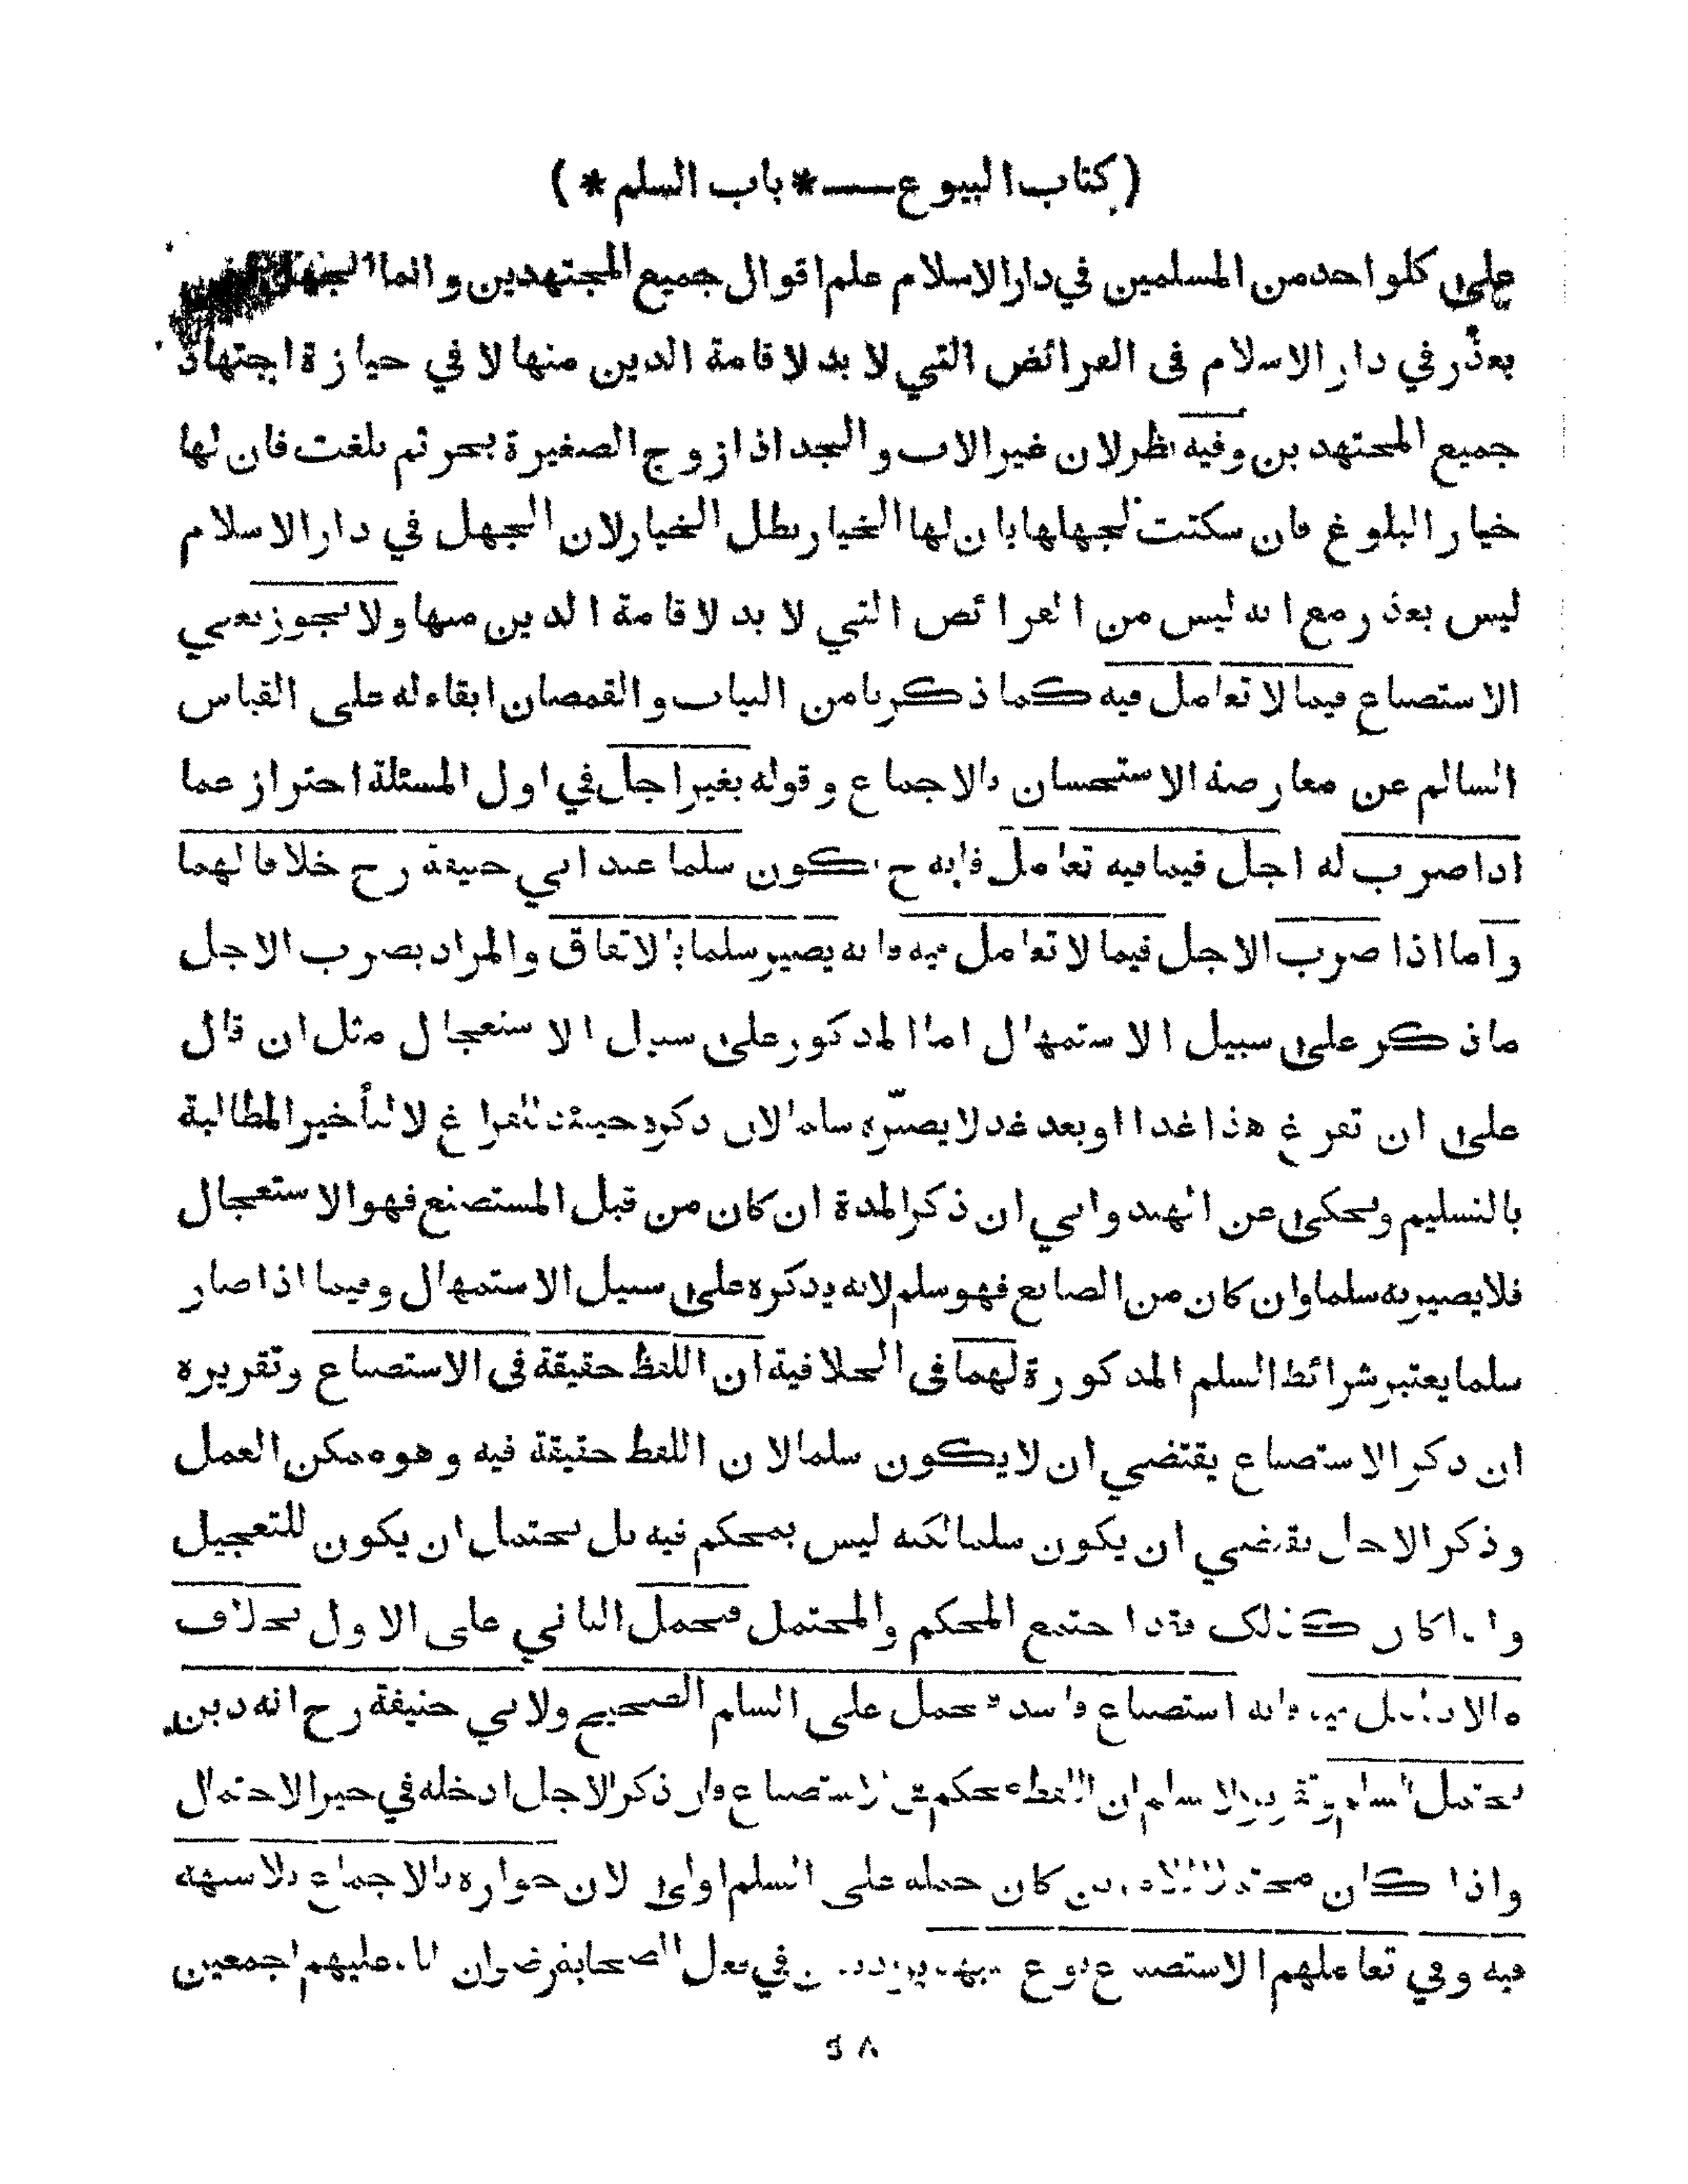 ( كتاب البيوع ــــ * باب السلم * )
على كل واحد من المسلمين في دار الاسلام علم اقوال جميع المجتهدين وانما الجهل
بعذر في دار الاسلام فى الفرائض التي لا بد لاقامة الدين منها لا في حيازة اجتهاد
جميع المجتهدين وفيه نظر لان غير الاب والجد اذا زوج الصغيرة بحر ثم بلغت فان لها
خيار البلوغ فان سكتت لجهلها بان لها الخيار بطل الخيار لان الجهل في دار الاسلام
ليس بعذر مع انه ليس من الفرائض التي لا بد لاقامة الدين منها ولا يجوز يعني
الاستصناع فيما لا تعامل فيه كما ذكرنا من الثياب والقمصان ابقاء له على القياس
السالم عن معارضة الاستحسان بالاجماع وقوله بغير اجل في اول المسئلة احتراز عما
اذا ضرب له اجل فيما فيه تعامل فانه ح يكون سلما عند ابي حنيفة رح خلافا لهما
واما اذا ضرب الاجل فيما لا تعامل فيه فانه يصير سلما بالاتفاق والمراد بضرب الاجل
ما ذكر على سبيل الاستمهال اما المذكور على سبيل الاستعجال مثل ان قال
على ان تفرغ هذا غدا او بعد غد لا يصيّره سلما لان ذكره حينئذ للفراغ لا لتأخير المطالبة
بالتسليم ويحكى عن الهندواني ان ذكر المدة ان كان من قبل المستصنع فهو الاستعجال
فلا يصير به سلما وان كان من الصانع فهو سلم لانه يذكره على سبيل الاستمهال وفيما اذا صار
سلما يعتبر شرائط السلم المذكورة لهما فى الخلافية ان اللفظ حقيقة فى الاستصناع وتقريره
ان ذكر الاستصناع يقتضي ان لا يكون سلما لان اللفظ حقيقة فيه وهو ممكن العمل
وذكر الاجل يقتضي ان يكون سلما لكنه ليس بمحكم فيه بل يحتمل ان يكون للتعجيل
واذا كان كذلك فقد اجتمع المحكم والمحتمل فيحمل الثاني على الاول بخلاف
مالا تعامل فيه فانه استصناع فاسد فيحمل على السلم الصحيح ولابي حنيفة رح انه دين
يحتمل السلم وتقريره لا نسلم ان اللفظ محكم في الاستصناع فان ذكر الاجل ادخله في حيز الاحتمال
واذا كان محتملا للامرين كان حمله على السلم اولى لان جوازه بالاجماع بلا شبهة
فيه وفي تعاملهم الاستصناع نوع شبهة في فعل الصحابة رضوان الله عليهم اجمعين